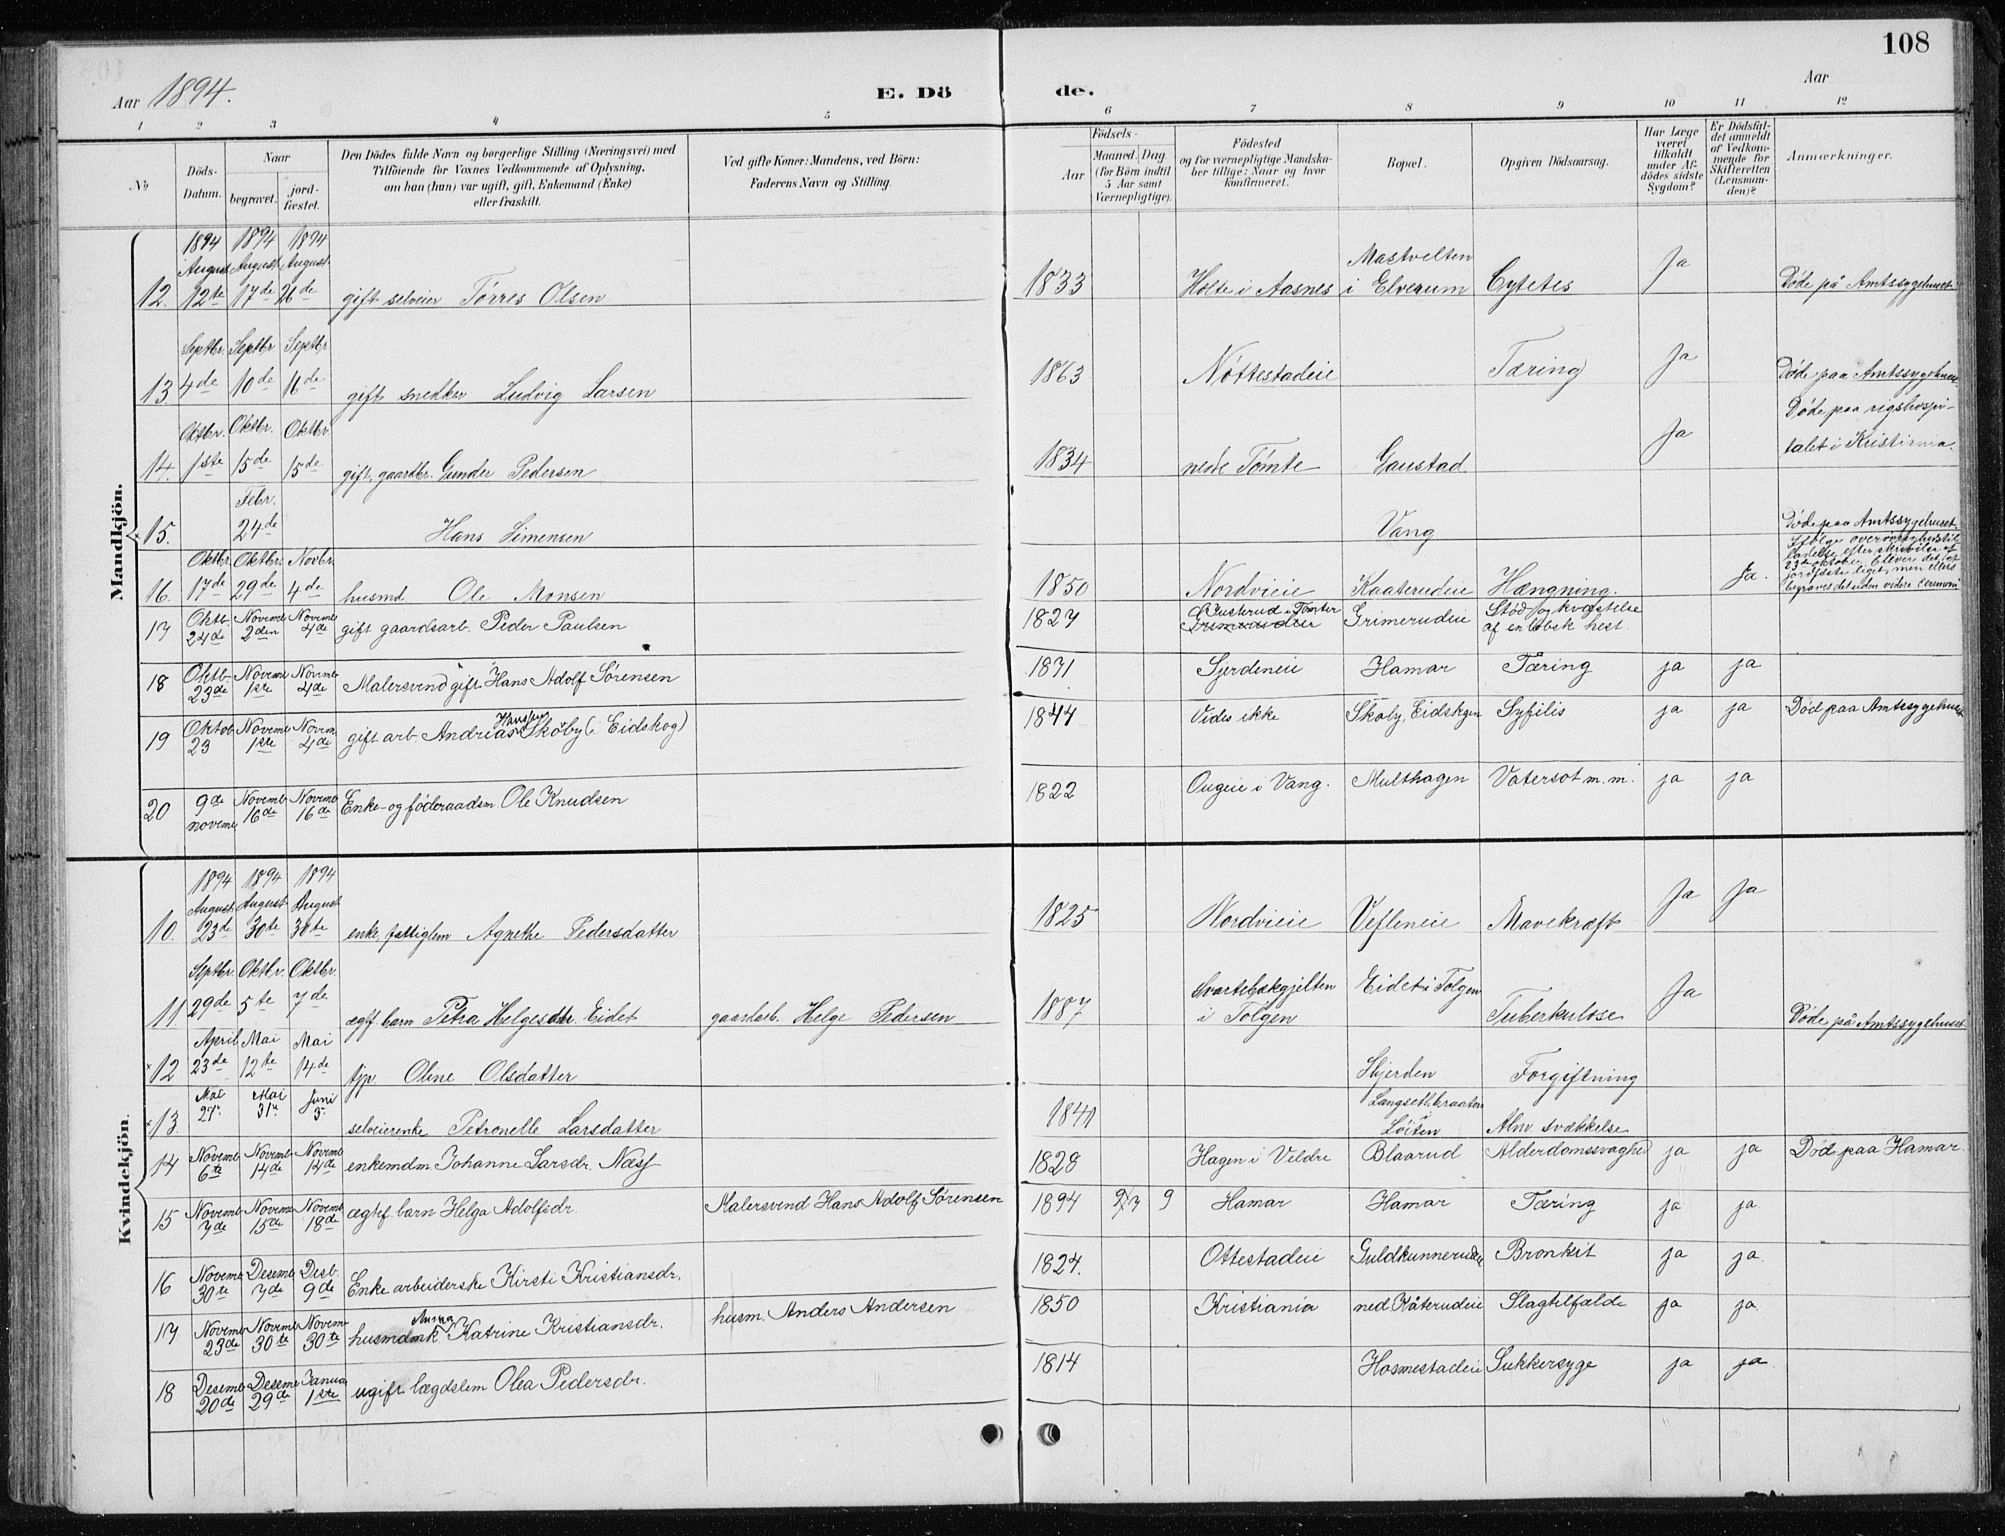 108
Aar 1894.
E. Dö
de.
Aar
1 2 3 4 5 6 7 8 9 10 11 12
No
Döds-
Datum.
Naar
begravet.
jord-
fæstet.
Den Dödes fulde Navn og borgerlige Stilling (Næringsvei) med
Tilföiende for Voxnes Vedkommende af Oplysning,
om han (hun) var ugift, gift, Enkemand (Enke)
eller fraskilt.
Ved gifte Koner: Mandens, ved Börn:
Faderens Navn og Stilling.
Födsels-
Aar
Maaned. Dag
(for Börn indtil
5 Aar samt
Værnepligtige).
Födested
og for værnepligtige Mandska-
ber tillige: Naar og hvor
konfirmeret.
Bopæl.
Opgiven Dödsaarsag.
Har Læge
været
tilkaldt
under Af-
dödes sidste
Sygdom?
Er Dödsfal-
det anmeldt
af Vedkom-
mende for
Skifteretten
(Lensman-
den)?
Anmærkninger.
Mandkjön.
1894 1894 1894
August August August
12. 12te 17de 26de gift selveier Tørres Olsen 1833 Holte i Aasnes Mastvelten i Elverum Cytetes Ja Døde på Amtssygehuset
Septbr. Septbr Septbr
13 4de 10de 16de gift snedker Ludvig Larsen 1863 Nøttestadeie Tæring Ja Døde paa Amtssygehuset
Oktbr. Oktbr. Oktbr
14. 1ste 15de 15de gift gaardbr. Gunder Pedersen 1834 nedre Tømte Gaustad Ja Døde paa rigshospi-
talet i Kristiania.
Febr.
15. 24de Hans Simensen Vang Døde paa Amtssygehuset.
Oktbr Oktbr. Novbr.
16. 17de 29de 4de husmd Ole Monsen 1850 Nordvieie Kaaterudeie Hængning. Ja. Ifølge
23de oktober
jordfæste liget, men ellers
begraves det uden videre Ceremoni
17 Oktb. 24de Novemb 2den Novemb 4de gift gaardsarb. Peder Paulsen 1827 Grimerudeie Grimerudeie Stød og kvæstelse
af en løbsk hest.
18 Oktb. 23de Novemb 1ste Novemb 4de Malersvend gift Hans Adolf Sørensen 1871 Sjerdeneie Hamar Tæring ja ja
19 Oktob 23 Novemb 1ste Novem 4de gift arb Andreas Hanssen Skøby (i Eidskog) 1844 Vides ikke Skøby, Eidskogen Syfilis ja ja Død paa Amtssygehuset
20 9de novemb Novemb 16de Novemb 16de Enke- og føderaadsm Ole Knudsen 1822 Ougeie i Vang. Multhagen Vatersot m. m. ja ja
Kvindekjön.
1894 1894 1894
August August August
10. 23de 30te 30te enke fattiglem Agnethe Pedersdatter 1825 Nordvieie Vefleneie Mavekræft Ja Ja
Septbr. Oktbr. Oktbr.
11 29de 5te 7de ægtf barn Petra Helgesdtr. Eidet gaardarb. Helge Pedersen 1887 Svartebækgjelten
i Tolgen Eidet i Tolgen Tuberkulose Ja Døde på Amtssygehuset
April Mai Mai
12 23de 12te 14de tjp Oline Olsdatter Skjerden Forgiftning
Mai Mai Juni
13. 27. 31te 3. selveierenke Petronelle Larsdatter 1841 Langsethbraaten
Løiten Alm. svækkelse
14 Novemb 6te Novemb 14de Novemb 14de enkemdm Johanne Larsdr. Næss 1828 Hagen i Veldre Blaarud Alderdomssvaghed ja ja Død paa Hamar.
15 Novemb 7de Novemb 15de Novemb 18de ægtef. barn Helga Adolfsdr. Malersvend Hans Adolf Sørensen 1894 9 Hamar Hamar Tæring ja ja
16 Novemb 30te Desemb 7de Desb. 9de Enke arbeiderske Kirsti Kristiansdr. 1824. Ottestadeie Guldkunnerudeie Bronkit ja ja
17 Novemb 23de Novemb 30te Novemb 30te husmdmk Anna Katrine Kristiansdr. husm. Anders Andersen 1850 Kristiania ned Kåterudeie Slagtilfælde ja ja
18 Desemb 20de Desemb 29de Janua 1ste ugift lægdslem Olea Pedersdr. 1814 Hosmestadeie Sukkersyge ja ja